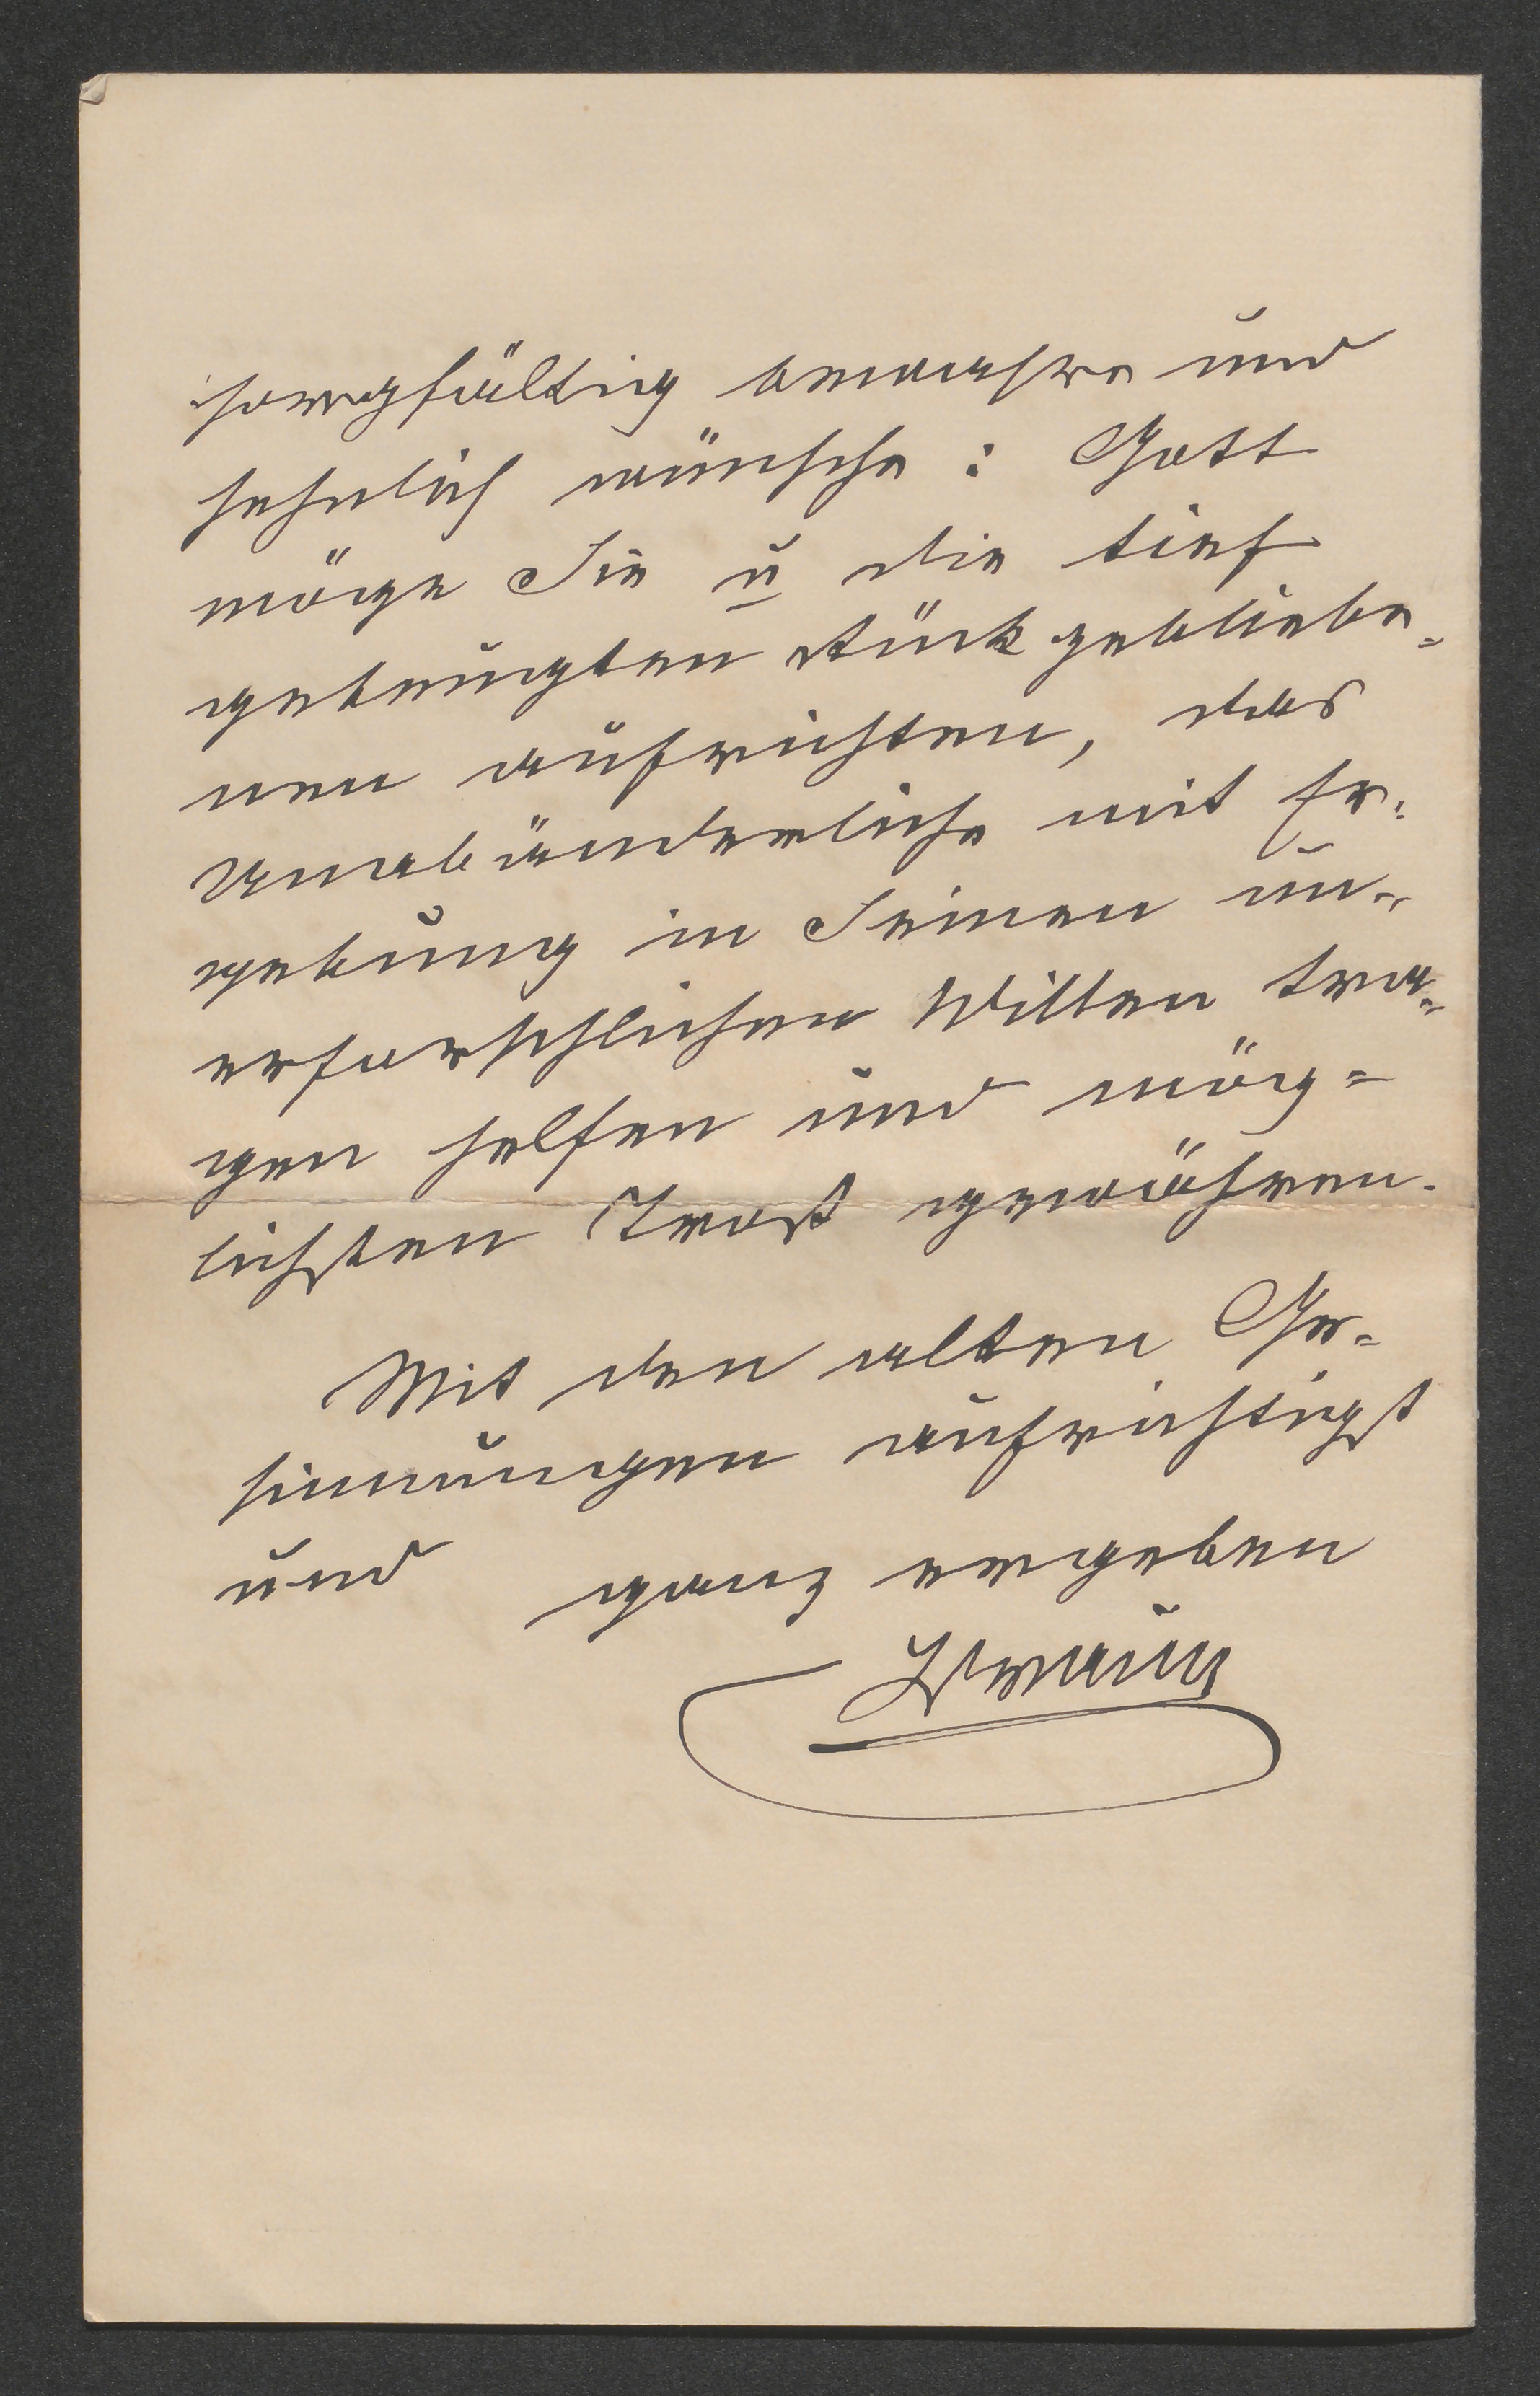 sorgfältig bewahre und
sehnlich wünsche: Gott
möge Sie u die tief
gebeugten Rückgebliebe-
nen aufrichten, das
Unabänderliche mit Er-
gebung in Seinen un-
erforschlichen Willen tra-
gen helfen und mög-
lichsten Trost gewähren.
Mit den alten Ge-
sinnungen aufrichtigst
und ganz ergeben